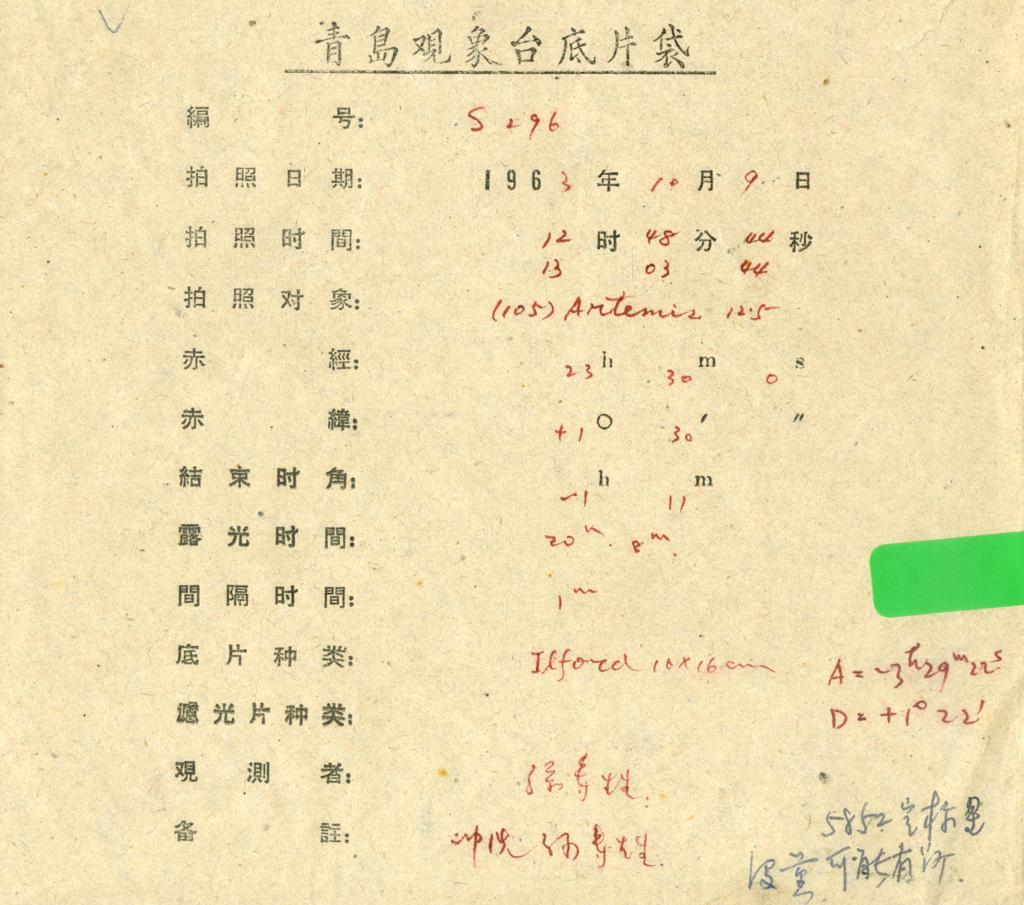 青島观象台底片袋
編号: S 296
拍照日期: 1963年10月9日
拍照时間: 12时48分44秒
13 03 44
拍照对象: (105) Artemis 12.5
赤經: 23h 30m 0s
赤緯: +1° 30′ ″
結束时角: -1h 11m
露光时間: 20m. 8m.
間隔时間: 1m
底片种类: Ilford 16×16cm
A = 23h29m22s
濾光片种类:
D = +1° 22′
观測者: 孙寿胜
备註: 冲洗 孙寿胜
5852 定标星
没量 可能有